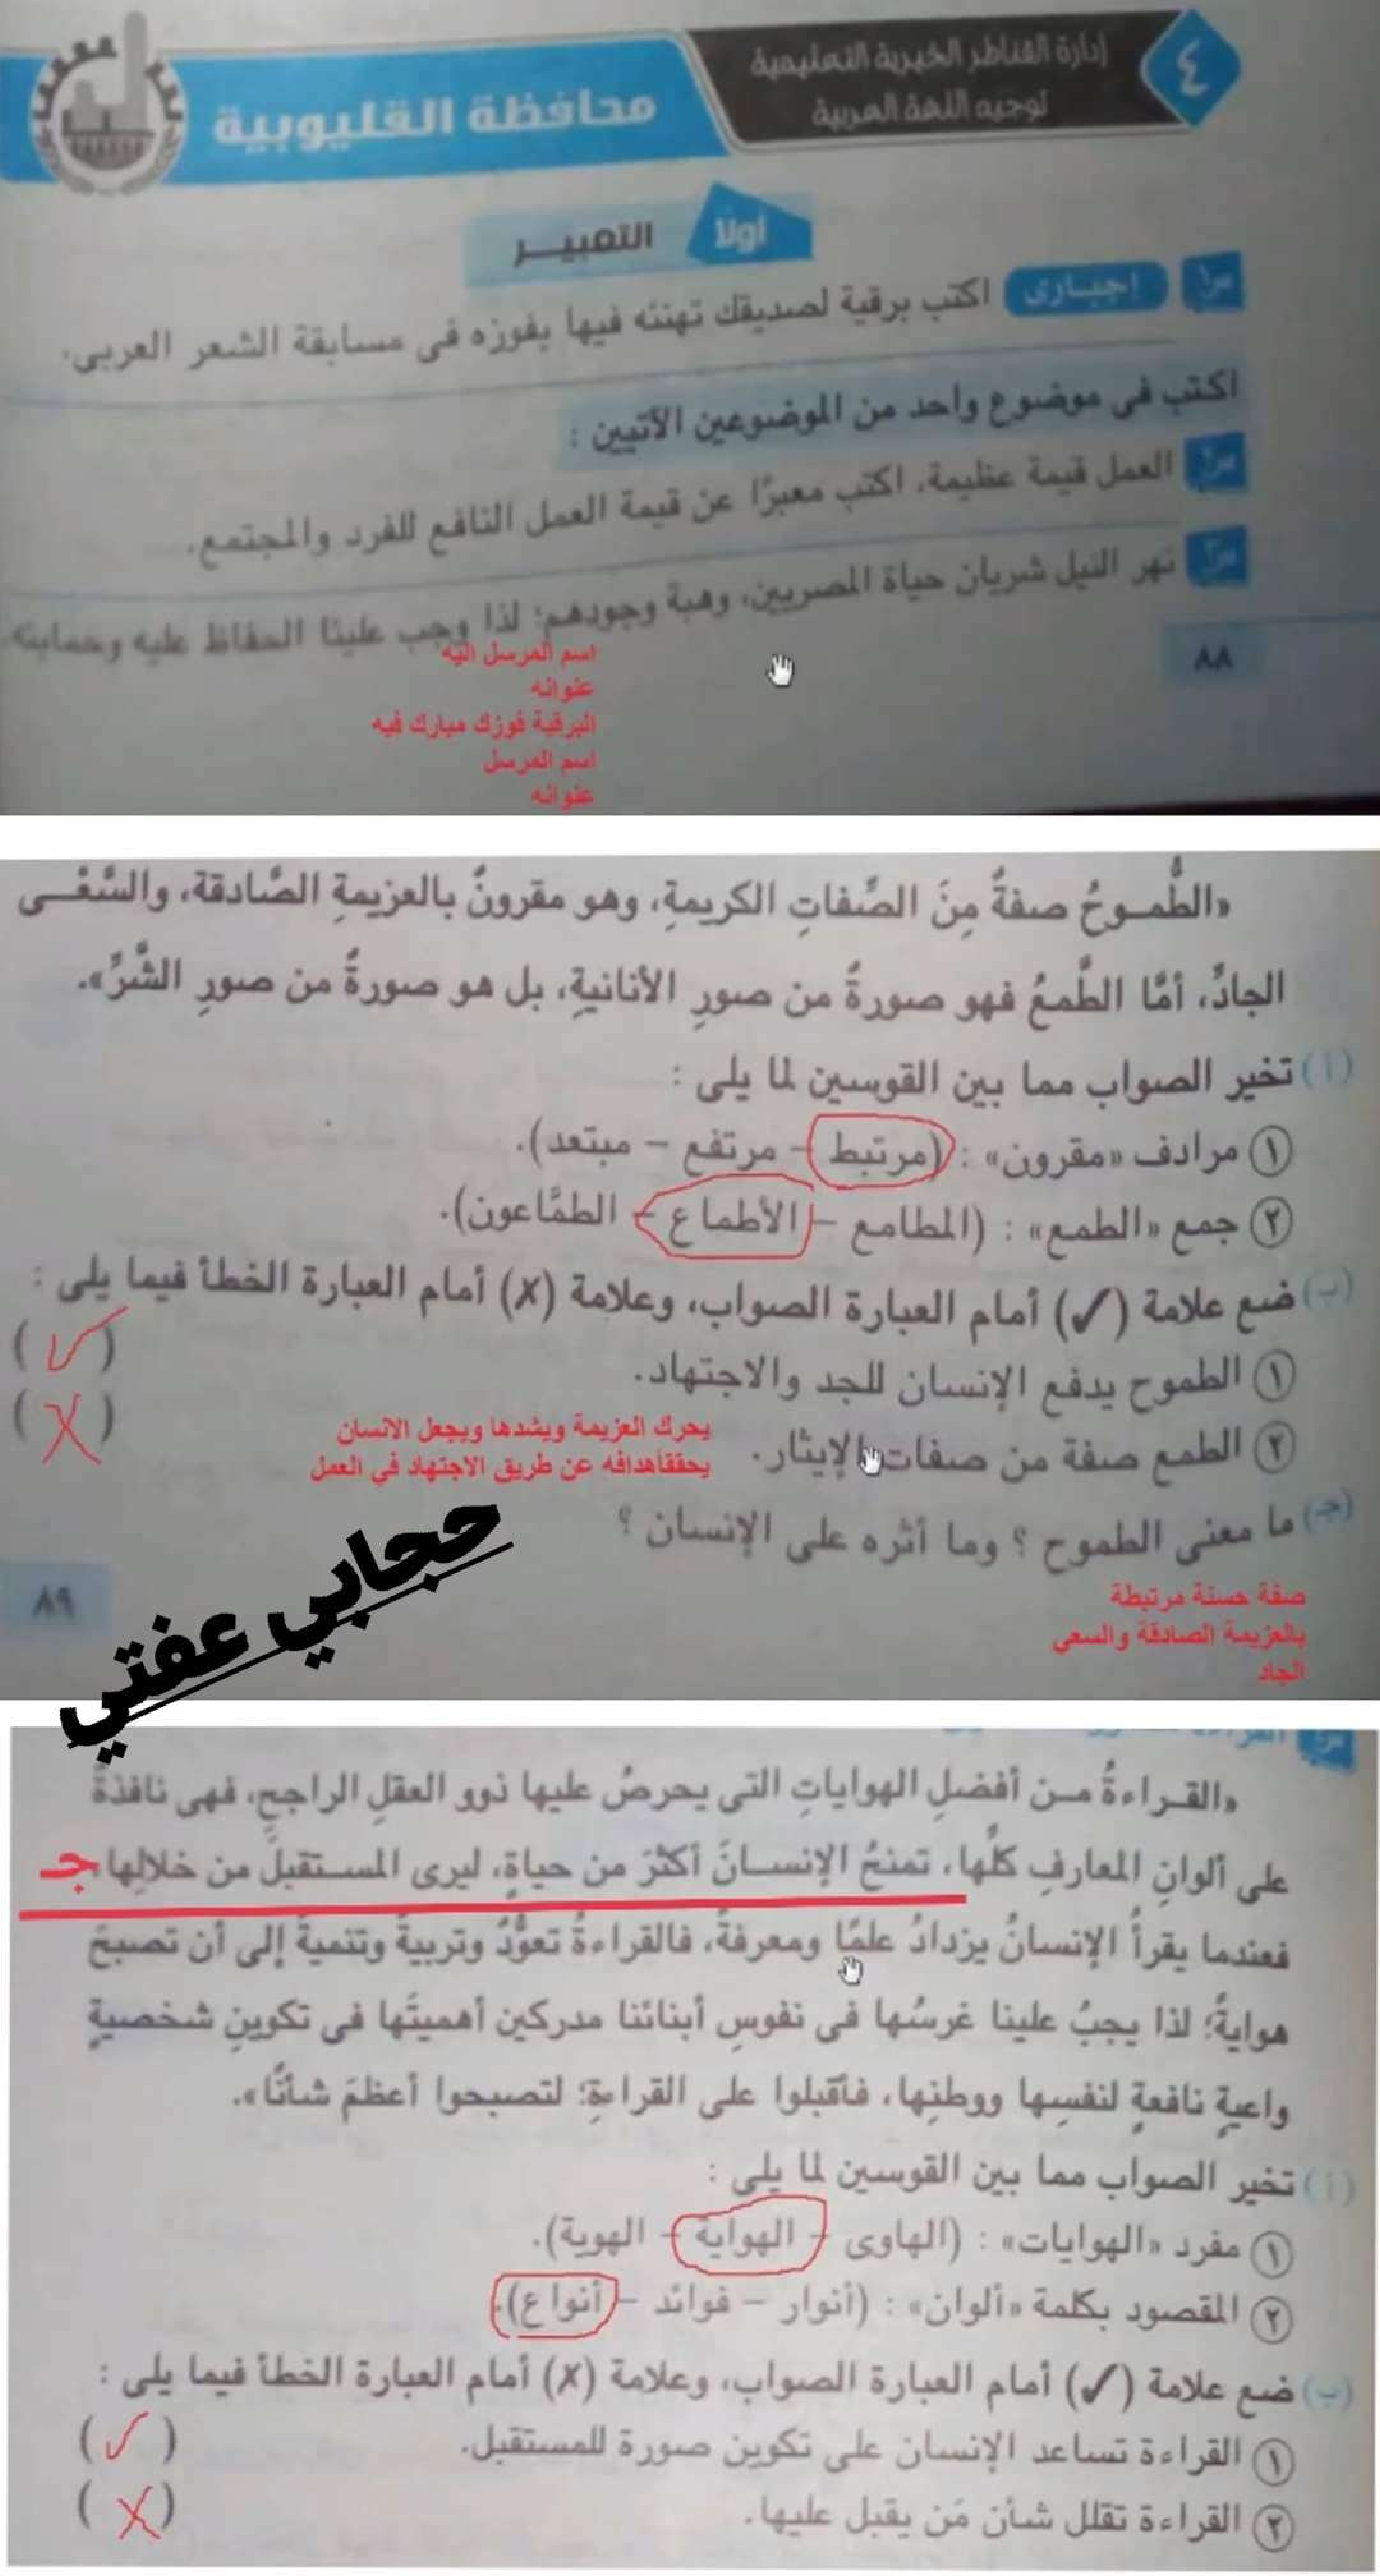 ٤
إدارة القناطر الخيرية التعليمية
توجيه اللغة العربية
محافظة القليوبية
أولاً التعبيــر
س١ إجبـارى اكتب برقية لصديقك تهنئه فيها بفوزه فى مسابقة الشعر العربى.
اكتب فى موضوع واحد من الموضوعين الآتيين :
س٢ العمل قيمة عظيمة، اكتب معبرًا عن قيمة العمل النافع للفرد والمجتمع.
س٣ نهر النيل شريان حياة المصريين، وهبة وجودهم؛ لذا وجب علينا الحفاظ عليه وحمايته.
٨٨
اسم المرسل اليه
عنوانه
البرقية فوزك مبارك فيه
اسم المرسل
عنوانه
«الطُّمـوحُ صفةٌ مِنَ الصِّفاتِ الكريمةِ، وهو مقرونٌ بالعزيمةِ الصَّادقة، والسَّعْـى
الجادِّ، أمَّا الطَّمعُ فهو صورةٌ من صورِ الأنانيةِ، بل هو صورةٌ من صورِ الشَّرِّ».
(أ) تخير الصواب مما بين القوسين لما يلى :
١ مرادف «مقرون» : (مرتبط – مرتفع – مبتعد).
٢ جمع «الطمع» : (المطامع – الأطماع – الطمَّاعون).
(ب) ضع علامة (✓) أمام العبارة الصواب، وعلامة (✗) أمام العبارة الخطأ فيما يلى :
١ الطموح يدفع الإنسان للجد والاجتهاد. (✓)
٢ الطمع صفة من صفات الإيثار. (✗)
يحرك العزيمة ويشدها ويجعل الانسان
يحققأهدافه عن طريق الاجتهاد في العمل
(جـ) ما معنى الطموح ؟ وما أثره على الإنسان ؟
صفة حسنة مرتبطة
بالعزيمة الصادقة والسعي
الجاد
٨٩
حجابي عفتي
«القـراءةُ مـن أفضلِ الهواياتِ التى يحرصُ عليها ذوو العقلِ الراجحِ، فهى نافذةٌ
على ألوانِ المعارفِ كلِّها، تمنحُ الإنسـانَ أكثرَ من حياةٍ، ليرى المسـتقبلَ من خلالِها، جـ
فعندما يقرأُ الإنسانُ يزدادُ علمًا ومعرفةً، فالقراءةُ تعوُّدٌ وتربيةٌ وتنميةٌ إلى أن تصبحَ
هوايةً؛ لذا يجبُ علينا غرسُها فى نفوسِ أبنائنا مدركين أهميتَها فى تكوينِ شخصيةٍ
واعيةٍ نافعةٍ لنفسِها ووطنِها، فأقبلوا على القراءةِ؛ لتصبحوا أعظمَ شأنًا».
(أ) تخير الصواب مما بين القوسين لما يلى :
١ مفرد «الهوايات» : (الهاوى – الهواية – الهوية).
٢ المقصود بكلمة «ألوان» : (أنوار – فوائد – أنواع).
(ب) ضع علامة (✓) أمام العبارة الصواب، وعلامة (✗) أمام العبارة الخطأ فيما يلى :
١ القراءة تساعد الإنسان على تكوين صورة للمستقبل. (✓)
٢ القراءة تقلل شأن مَن يقبل عليها. (✗)